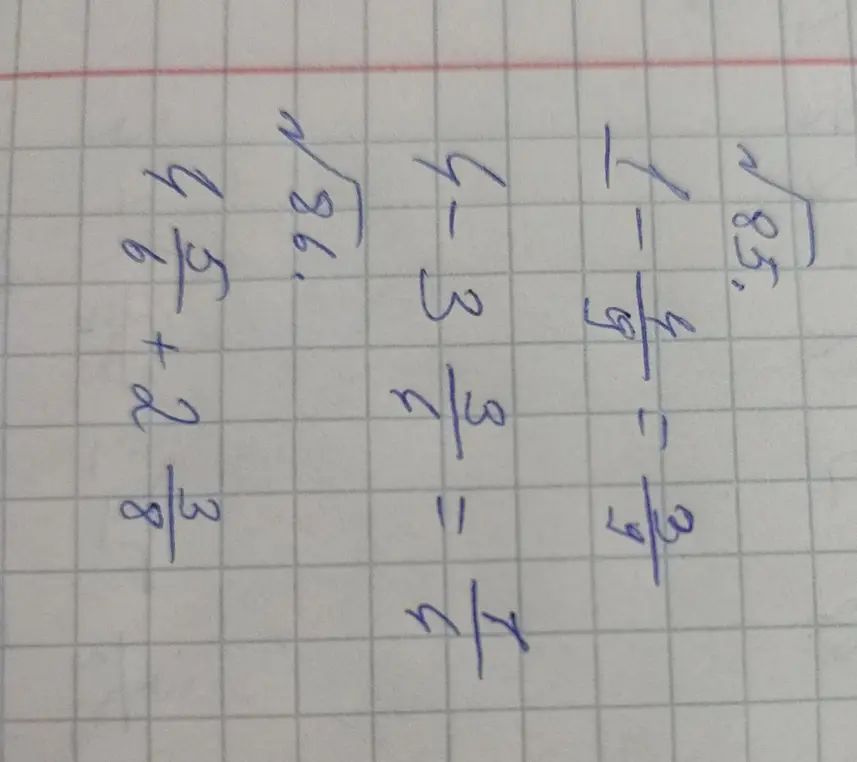 √85.
1 - 4/9 = 3/9
4 - 3 3/4 = 1/4
√86.
4 5/6 + 2 3/8